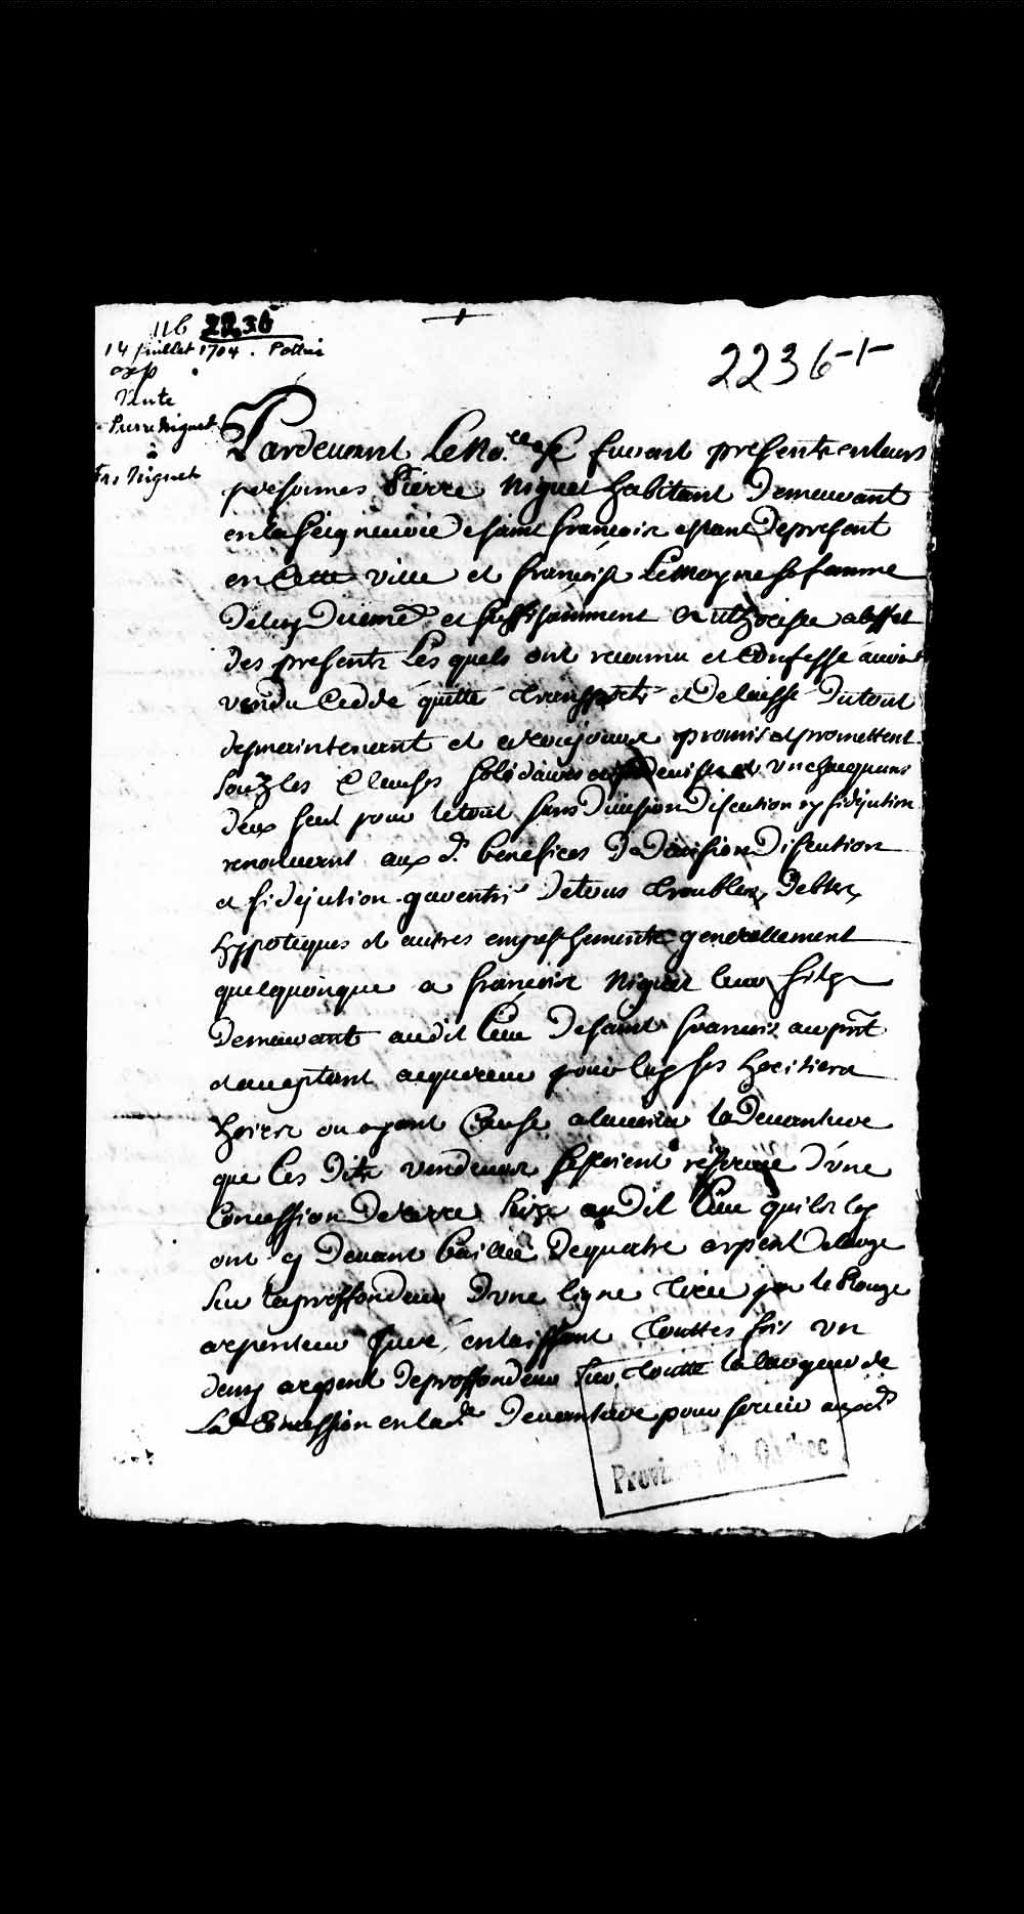 116 2236
14 juillet 1704. Pottier
exp
Vente
Pierre Niquet
à
Frs Niquet
2236-1-
Pardevant Le No.re furent presents en leurs
personnes Pierre Niquet habitant demeurant
en la seigneurie de saint francois estant de present
en Cette ville et francoise Lemoyne sa femme
de luy deuem.t et suffisamment authorisee a leffet
des presents Les quels ont reconnu et Confessé avoir
vendu Cedde quitté transporté et delaissé du tout
des maintenant et a toujours promis et promettent
souz les Clauses solidaires un chacquun
deux seul pour le tout sans diuision discution ny fidejution
renoncant aux d. benefices de diuision discution
et fidejution garentir de tous troubles, debtes,
hypoteques et autres empeschements generallement
quelquonque a francois Niquet leur filz
demeurant audit Lieu de saint francois au pnt
et acceptant acquereur pour luy ses heritiers
hoirs ou ayant Cause a lavenir la deuanture
que les dits vendeurs sestoient reservée d'une
Concession de terre size au dit Lieu quils luy
ont cy deuant baillée de quatre arpent de large
sur la proffondeur d'une ligne tirée par le Rouge
arpenteur Juré, en laissant touttes fois un
demy arpent de proffondeur sur toutte la largeur de
Lad Concession en lad. deuanture pour seruir auxd.
Province de Québec